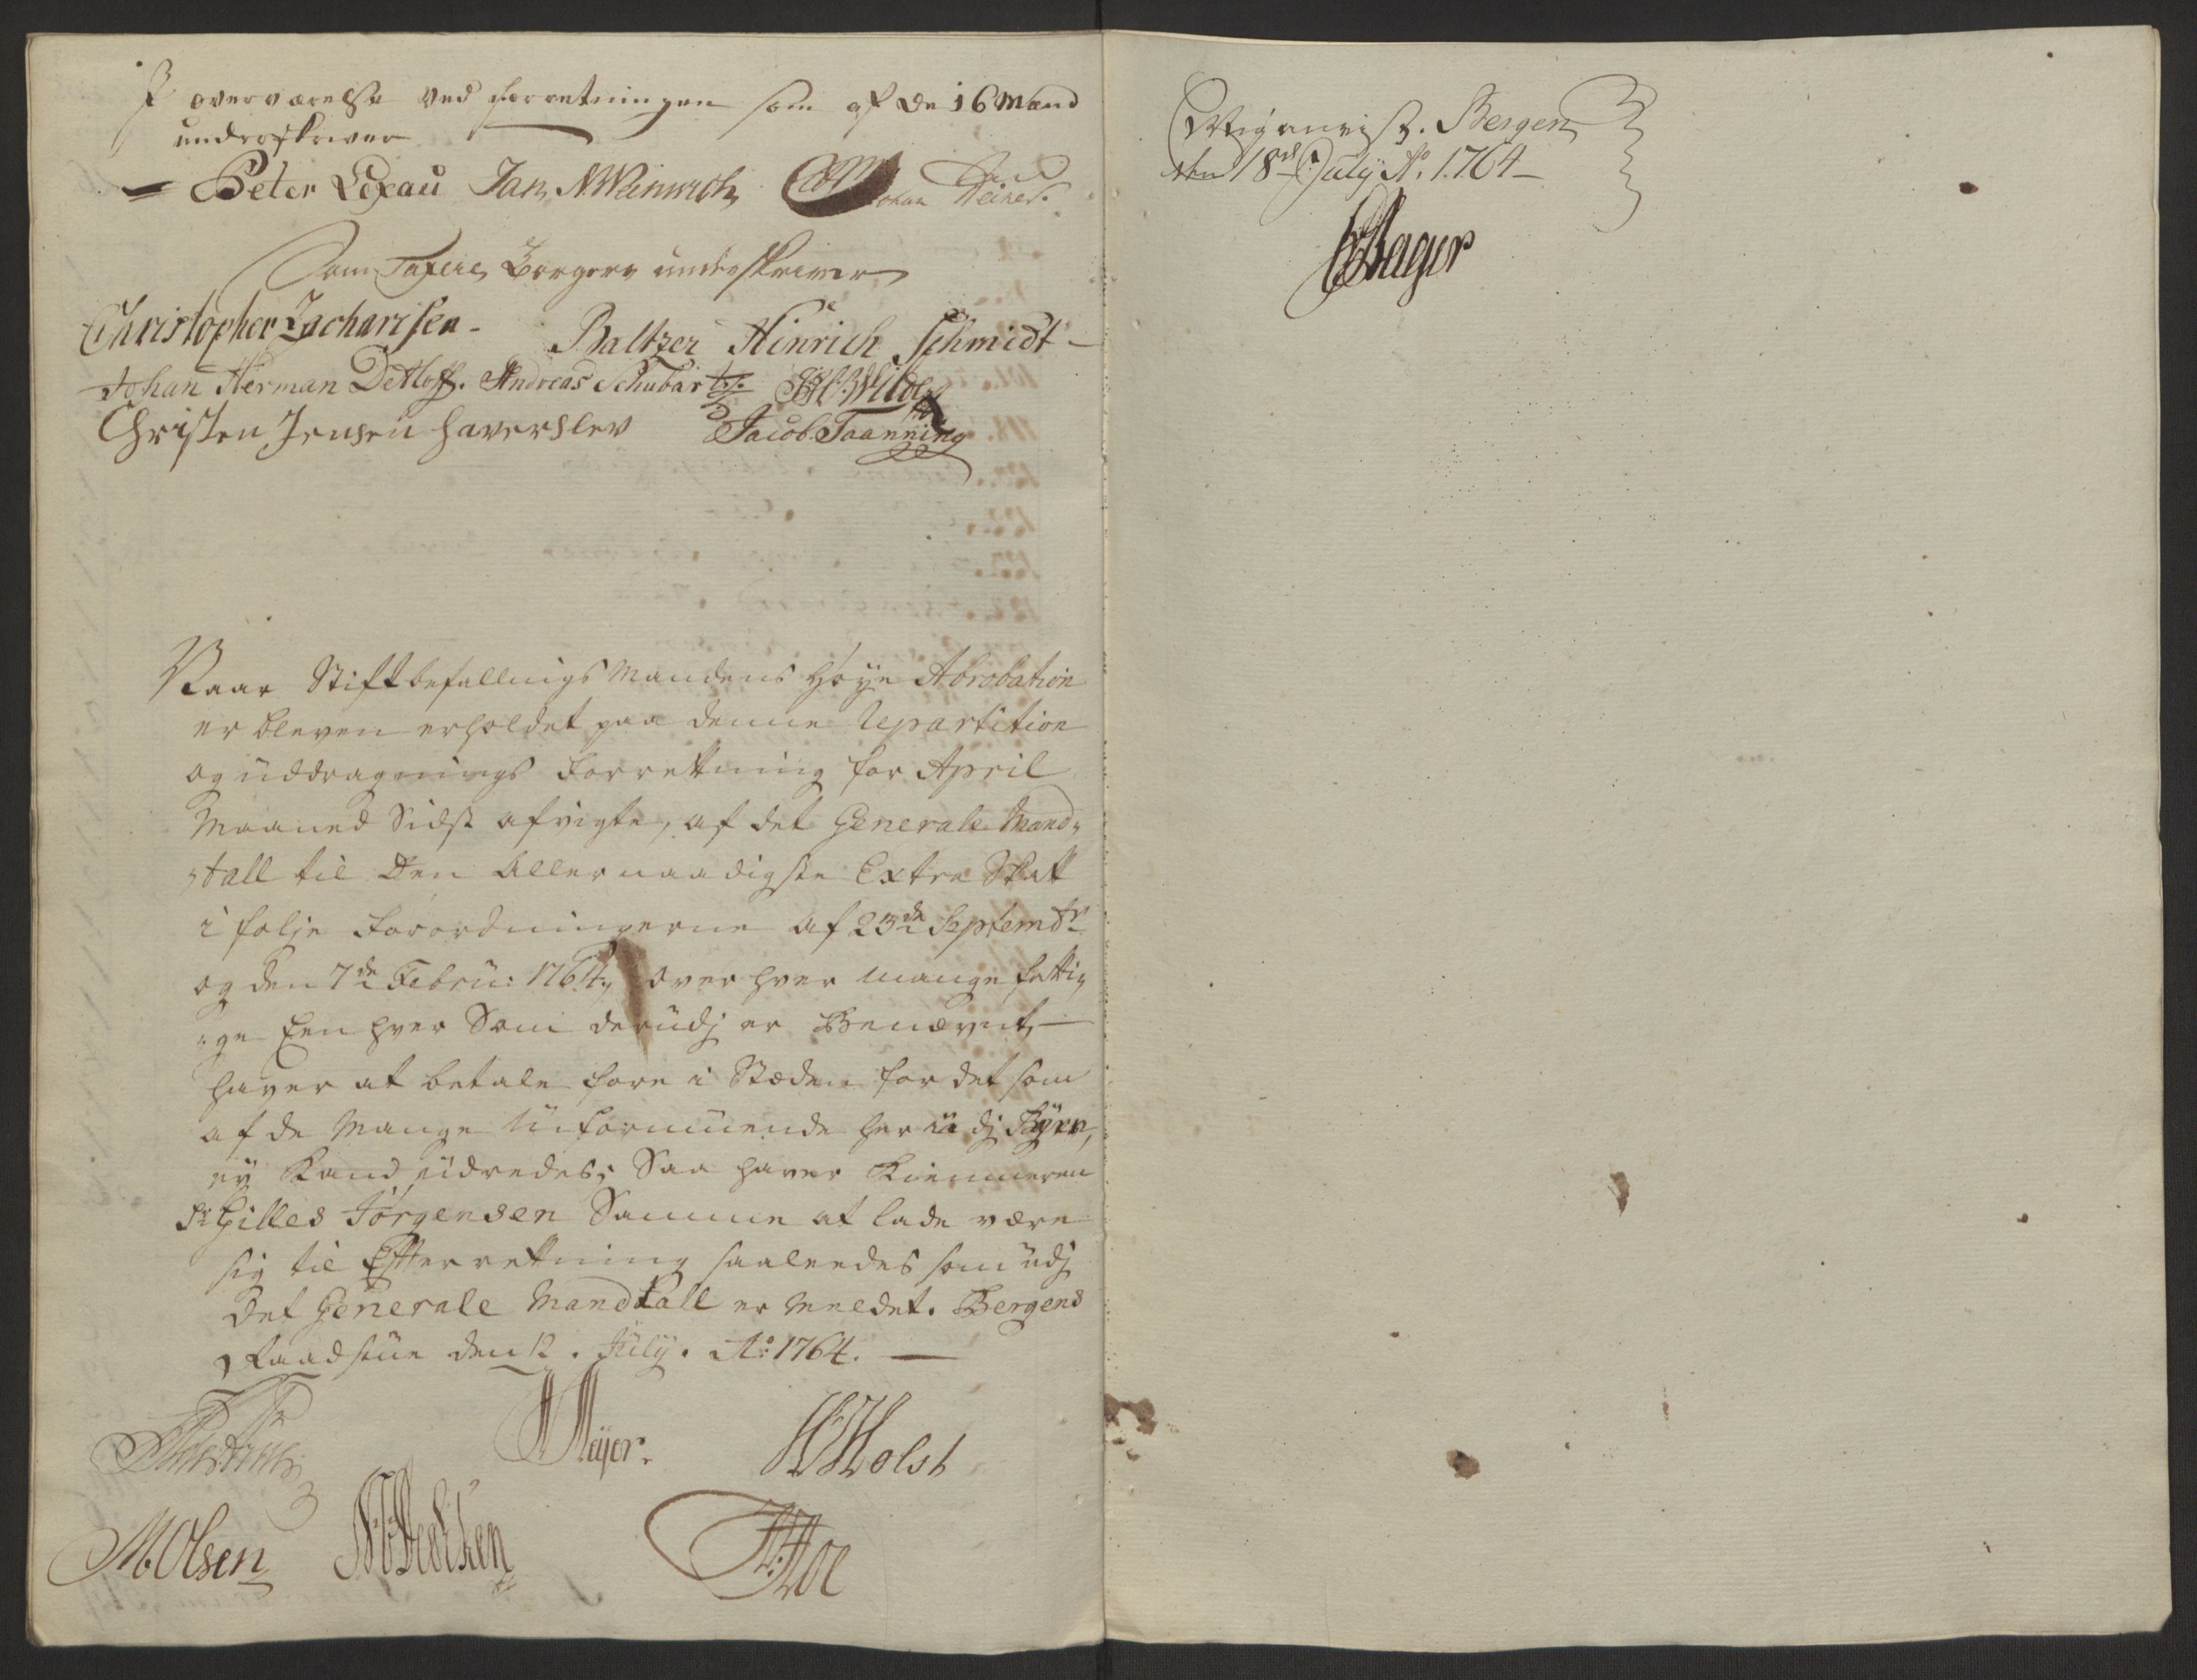 I overværelse ved forretningen som af de 16 Mænd
underskriver
Peter Lexau Jan N Weinwich Johan Reiner
Som Taxere Borgere underskriver
Christopher Zacharisen - Baltzer Hinrich Schmidt -
Johan Herman Detloff. Andreas Schubart Wilde
Christen Jensen Haverslev Jacob Taanning
Naar Stiftbefallnigs Mandens Høye Abrobation
er bleven erholdet paa denne Repartition
og uddragnings Forrettning for April
Maaned Sidst afvigte, af det Generale Mand,,
,,tall til Den Allernaadigste Extra Skatt
i følje Forordningerne af 23de Septembr
og den 7de Febru: 1764, over hvor mange fatti,,
,,ge Een hver Som derudj er Benævnt,
haver at betale fore i Stæden for det som
af de Mange Uformuende her udj Byen,
ey kand udredes; Saa haver Kiemneren
Sr Gilles Jørgensen Samme at lade være
sig til Efterrettning saaleedes som udj
Det Generale Mandtall er Meeldet. Bergens
Raadstue den 12. July. Ao: 1764. —
Meyer. H Holst
M. Olsen
Bergen
den 18de July Ao. 1764 -
Hager